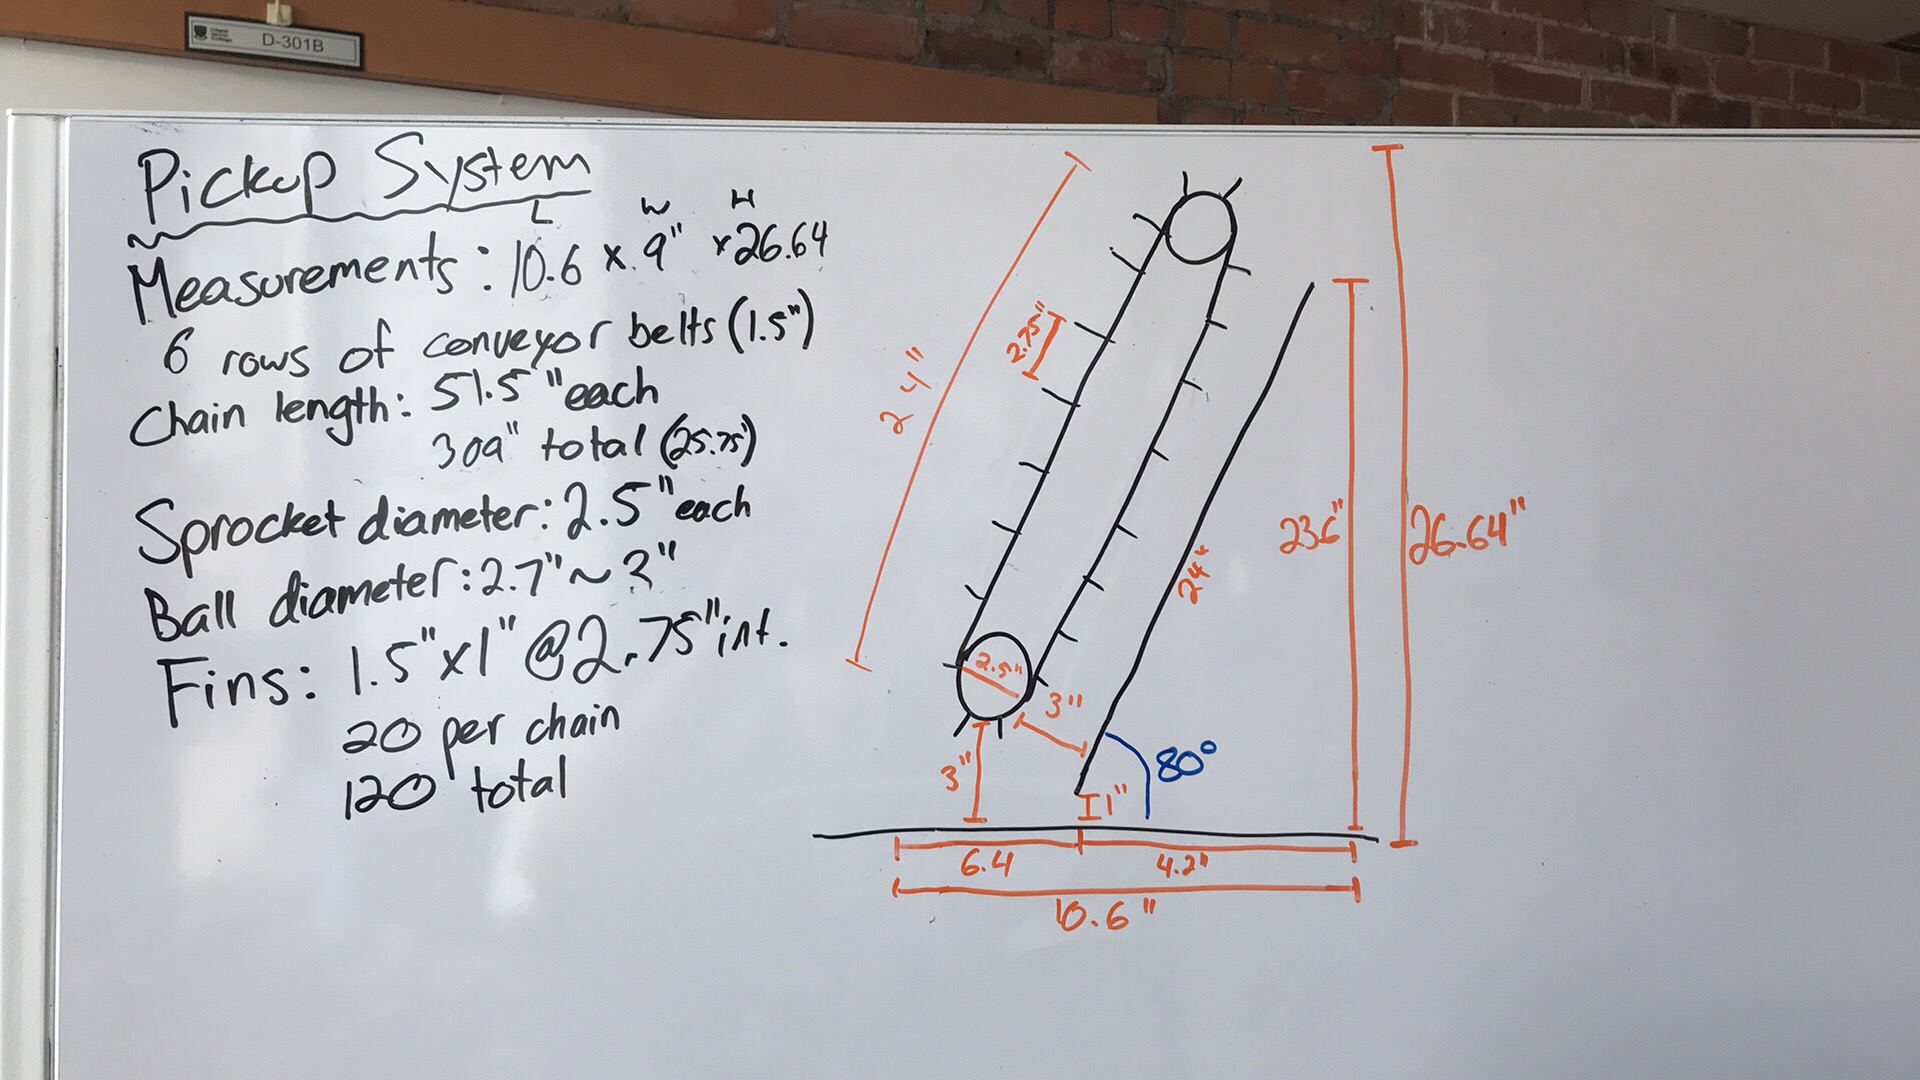 D-301B
Pickup System
L W H
Measurements: 10.6 x 9" x 26.64
6 rows of conveyor belts (1.5")
Chain length: 51.5" each
309" total (25.75')
Sprocket diameter: 2.5" each
Ball diameter: 2.7" ~ 3"
Fins: 1.5" x 1" @ 2.75" int.
20 per chain
120 total
24"
2.75"
24"
23.6"
26.64"
2.5"
3"
3"
1"
80°
6.4
4.2"
10.6"